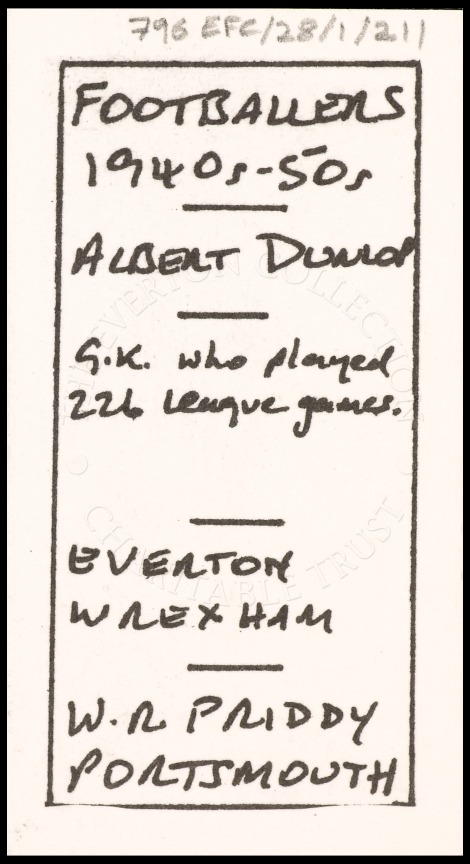 796 EFC/28/1/211
FOOTBALLERS
1940s-50s
ALBERT DUNLOP
G.K. who played
226 League games.
EVERTON
WREXHAM
W.R. PRIDDY
PORTSMOUTH
THE EVERTON COLLECTION
CHARITABLE TRUST